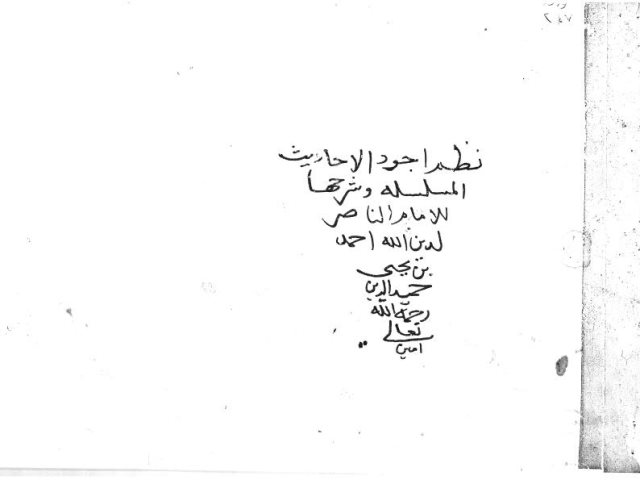 نظم اجود الاحاديث
المسلسله وشرحها
للامام الناصر
لدين الله احمد
بن يحيى
حميد الدين
رحمه الله
تعالى
امين